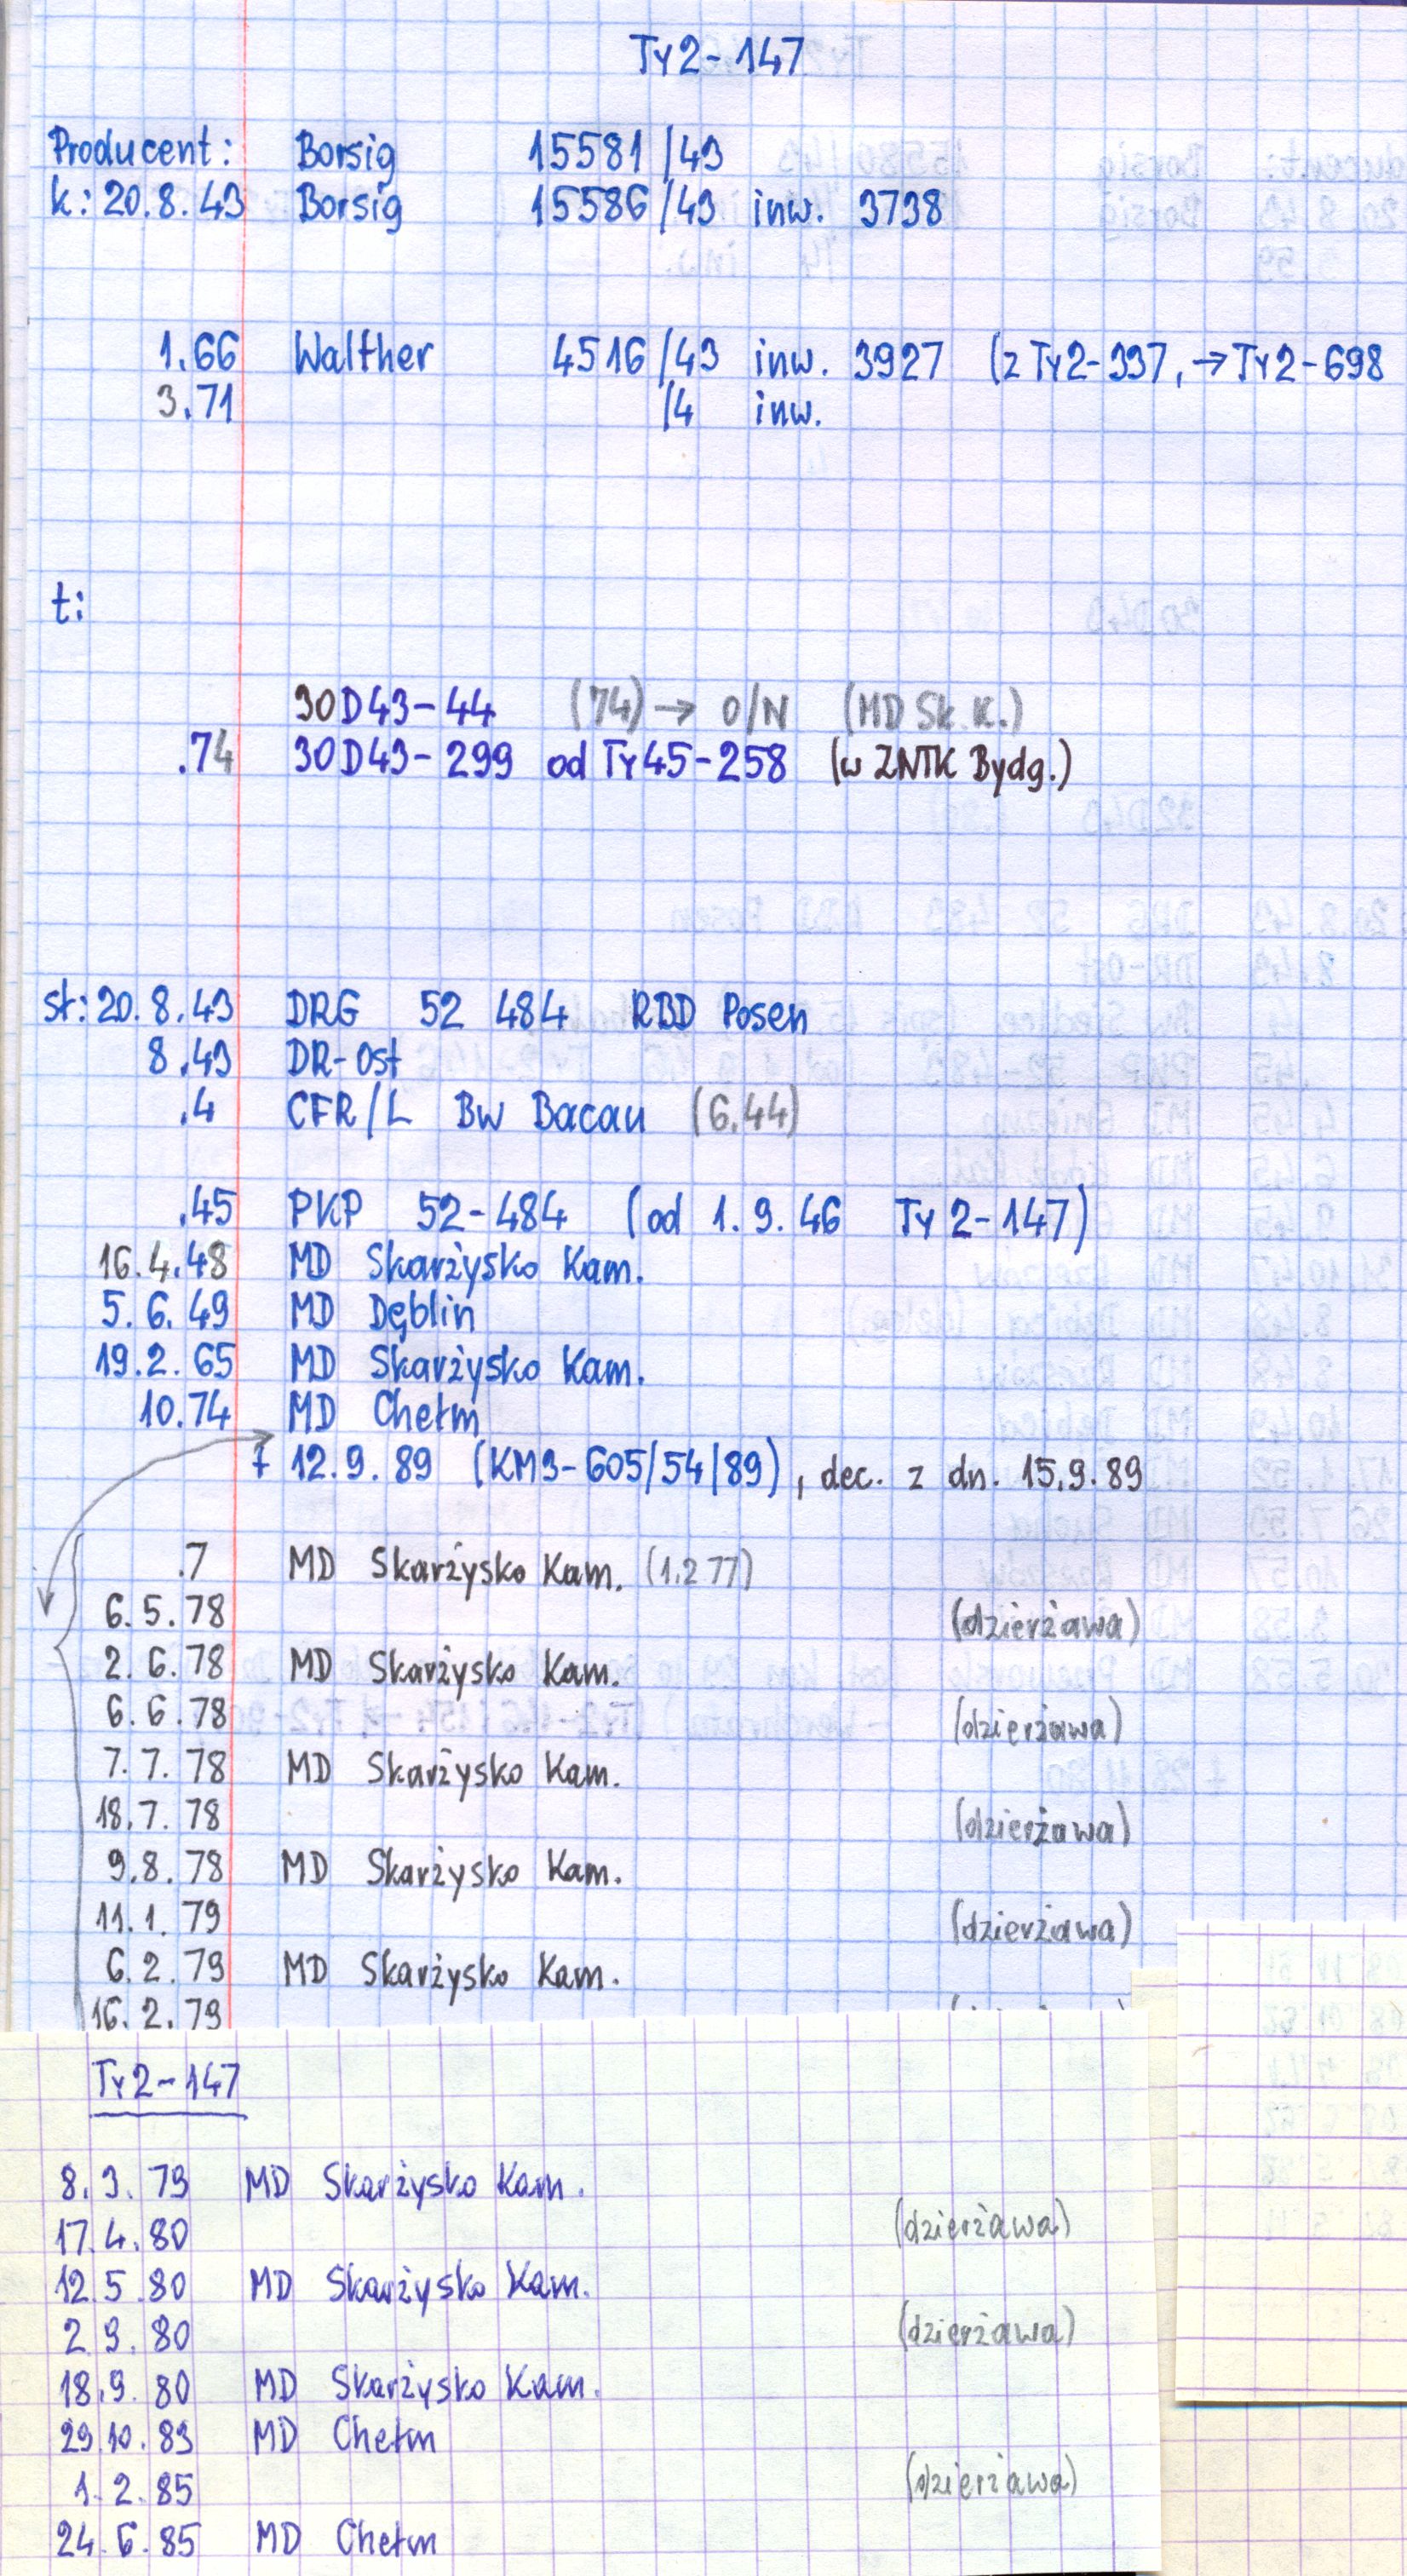 Ty2-147
Producent: Borsig 15581/43
k: 20.8.43 Borsig 15586/43 inw. 3738
1.66 Walther 4516/43 inw. 3927 (z Ty2-337, → Ty2-698
3.71 /4 inw.
t:
30D43-44 (74) → O/N (MD Sk. K.)
.74 30D43-299 od Ty45-258 (w ZNTK Bydg.)
st: 20.8.43 DRG 52 484 RBD Posen
8.43 DR-Ost
.4 CFR/L Bw Bacau (6.44)
.45 PKP 52-484 (od 1.9.46 Ty2-147)
16.4.48 MD Skarżysko Kam.
5.6.49 MD Dęblin
19.2.65 MD Skarżysko Kam.
10.74 MD Chełm
+ 12.9.89 (KM3-605/54/89), dec. z dn. 15.9.89
.7 MD Skarżysko Kam. (1.2 77)
6.5.78 (dzierżawa)
2.6.78 MD Skarżysko Kam.
6.6.78 (dzierżawa)
7.7.78 MD Skarżysko Kam.
18.7.78 (dzierżawa)
9.8.78 MD Skarżysko Kam.
11.1.79 (dzierżawa)
6.2.79 MD Skarżysko Kam.
16.2.79
Ty2-147
8.3.79 MD Skarżysko Kam.
17.4.80 (dzierżawa)
12.5.80 MD Skarżysko Kam.
2.9.80 (dzierżawa)
18.9.80 MD Skarżysko Kam.
29.10.83 MD Chełm
1.2.85 (dzierżawa)
24.6.85 MD Chełm